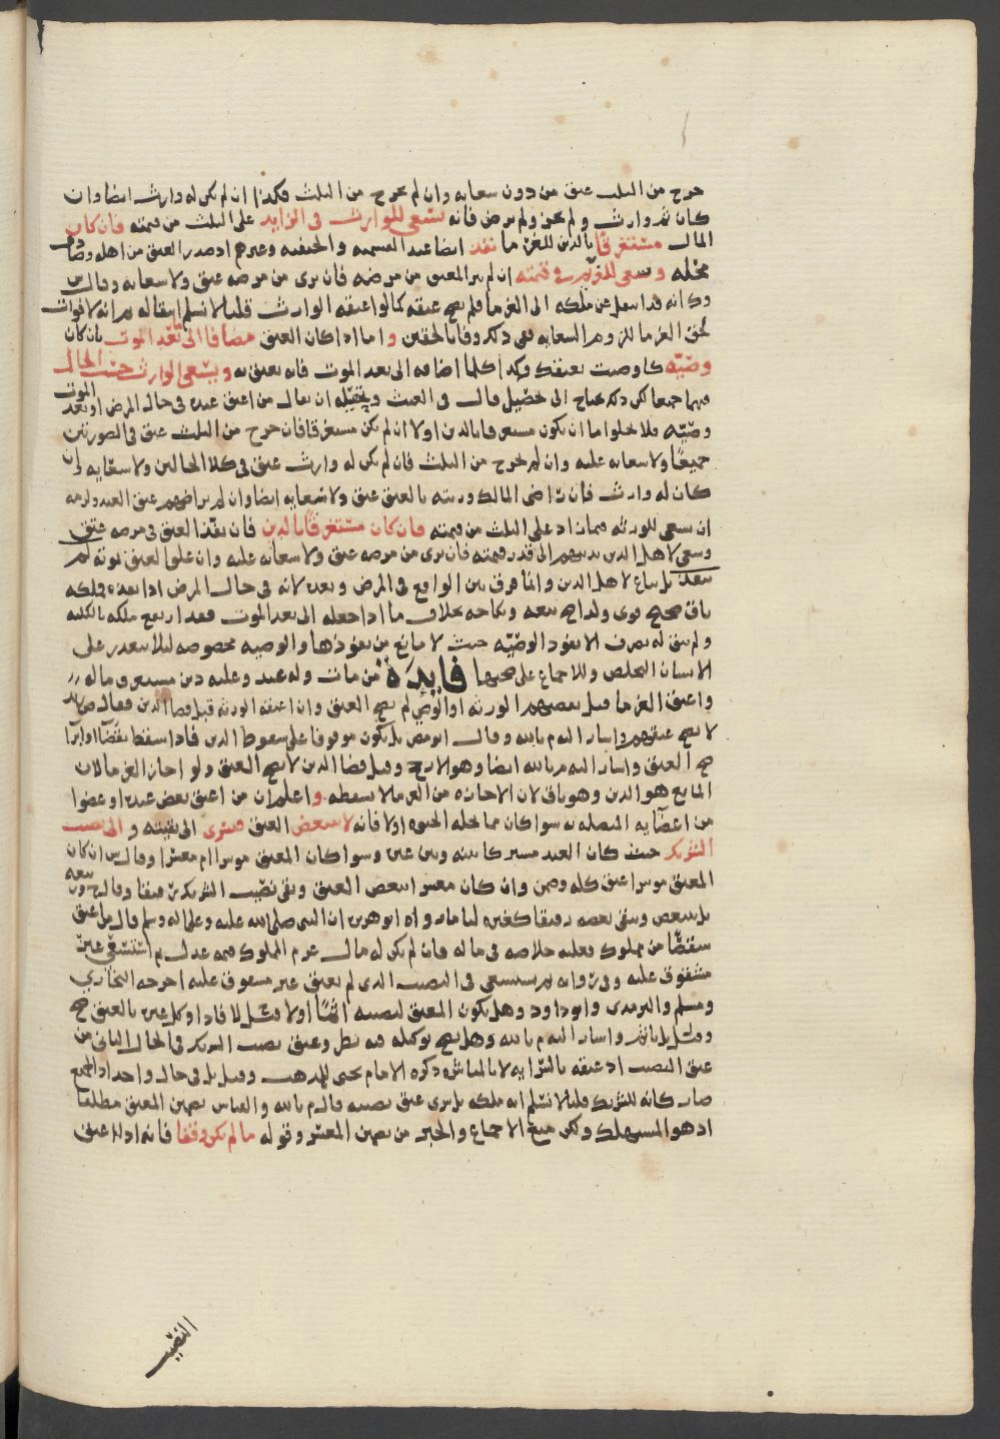 خرج من الثلث عتق من دون سعايه وان لم يخرج من الثلث فكذا ان لم يكن له وارث ايضا وان
كان ثم وارث ولم يجز ولم يرض فانه يسعى للوارث في الزايد على الثلث من قيمته فان كان
المال مستغرقا بالدين للغرما نفذ ايضا عند القسميه والحنفيه وغيرهم اذ صدر العتق من اهله وصادف
محله ويسعى للغريم في قيمته ان لم يبر المعتق من مرضه فان برى من مرضه عتق ولا سعايه وقال ش
وك انه قد انتقل عن ملكه الى الغرما فلم يصح عتقه كما لو اعتقه الوارث قلنا لا نسلم انتقاله ثم انه لا فوات
لحق الغرما للزوم السعايه ففي ذلك وفا بالحقين واما اذا كان العتق مضافا الى بعد الموت بان كان
وصيه كاوصيت بعتقك وكذا كلما اضافه الى بعد الموت فانه يعتق به ويسعى لوارث حسب الحال
فيهما جميعا لكن ذلك يحتاج الى تفصيل قال في الغيث وتحقيقه ان يقال من اعتق عبده في حال المرض او بعد الموت
وصيه فلا يخلوا ما ان يكون مستغرقا بالدين اولا ان لم يكن مستغرقا فان خرج من الثلث عتق في الصورتين
جميعا ولا سعايه عليه وان لم يخرج من الثلث فان لم يكن له وارث عتق في كلا الحالين ولا سعايه وان
كان له وارث فان تراضى المالك وورثته بالعتق عتق ولا سعايه ايضا وان لم يراضهم عتق العبد ولزمه
ان يسعى للورثه فيما زاد على الثلث من قيمته فان كان مستغرقا بالدين فان نفذ العتق في مرضه عتق
وسعى لاهل الدين بدينهم الى قدر قيمته فان برى من مرضه عتق ولا سعايه عليه وان علق العتق بموته لم
ينفذ بل يباع لاهل الدين وانما فرق بين الواقع في المرض وبعده لانه في حال المرض اذا نفذه فملكه
باق صحيح قوي ولذا صح بيعه ونكاحه بخلاف ما اذا جعله الى بعد الموت فقد ارتفع ملكه بالكليه
ولم يبق له تصرف الا نفوذ الوصيه حيث لا مانع من نفوذها والوصيه مخصوصه ليلا يتعذر على
الانسان التخلص وللاجماع على صحتها فايده من مات وله عبد وعليه دين مستغرق ماله
واعتق الغرما قبل بعضهم الورثه او الوصي لم يصح العتق وان اعتقه الورثه قبل قضا الدين فقال ص بالله
لا يصح عتقهم واشار اليه م بالله وقال ابو مضر بل يكون موقوفا على سقوط الدين فاذا سقط بقضا او ابرا
صح العتق واشار اليه م بالله ايضا وهو الارجح وقبل قضا الدين لا يصح العتق ولو اجاز الغرما لان
المانع هو الدين وهو باق لان الاجازه من الغرما لا تسقطه واعلم ان من اعتق بعض عبده او عضوا
من اعضايه المتصله به سوا كان مما تحله الحيوه اولا فانه لا يتبعض العتق فيسري الى بقيته والى نصيب
الشريك حيث كان العبد مشتركا بينه وبين غيره وسوا كان المعتق موسرا ام معسرا وقال ش ان كان
المعتق موسرا عتق كله وضمن وان كان معسرا تبعض العتق وبقي نصيب الشريك رقيقا وقال
بل يتبعض ويبقى بعضه رقيقا كغيره لنا ما رواه ابو هريره ان النبي صلى الله عليه وعلى اله وسلم قال من اعتق
شقصا من مملوك فعليه خلاصه في ماله فان لم يكن له مال قوم المملوك قيمه عدل ثم استسعي غير
مشقوق عليه وفي روايه ثم يستسعى في نصيب الذي لم يعتق غير مشقوق عليه اخرجه البخاري
ومسلم والترمذي وابو داود وهل يكون المعتق لنصيبه اثما اولا قيل لا فاذا وكل غيره بالعتق صح
وقيل بل ياثم واشار اليه م بالله وهل يصح توكيله فيه نظر وعتق نصيب الشريك في الحال الثاني من
عتق النصيب اذ عتقه بالسرايه لا بالمباشره ذكره الامام يحيى للمذهب وقيل بل في حال واحد اذ الجميع
صار كانه للشريك قلنا لا نسلم انه ملكه بل سرى عتق نصيبه قال م بالله والقياس تضمين المعتق مطلقا
اذ هو المستهلك ولكن منع الاجماع والخبر من تضمين المعسر وقوله ما لم يكن وقفا فانه اذا اعتق
النصيب